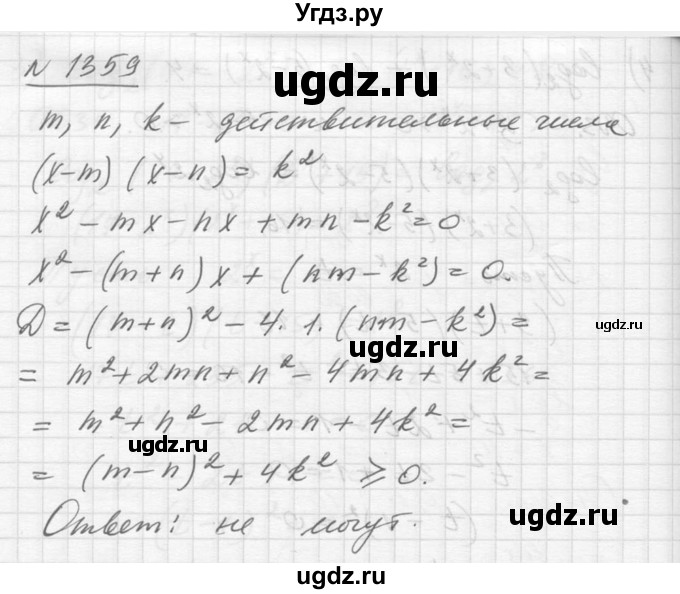 Угдз.ру
№ 1359
ugdz.ru
m, n, k – действительные числа
(x-m) (x-n) = k²
x² - mx - nx + mn - k² = 0
x² - (m+n) x + (nm - k²) = 0.
ugdz.ru
D = (m+n)² - 4. 1. (nm - k²) =
ugdz.ru
ugdz.ru
= m² + 2mn + n² - 4mn + 4k² =
= m² + n² - 2mn + 4k² =
ugdz.ru
= (m-n)² + 4k² ⩾ 0.
Ответ: не могут.
ugdz.ru
ugdz.ru